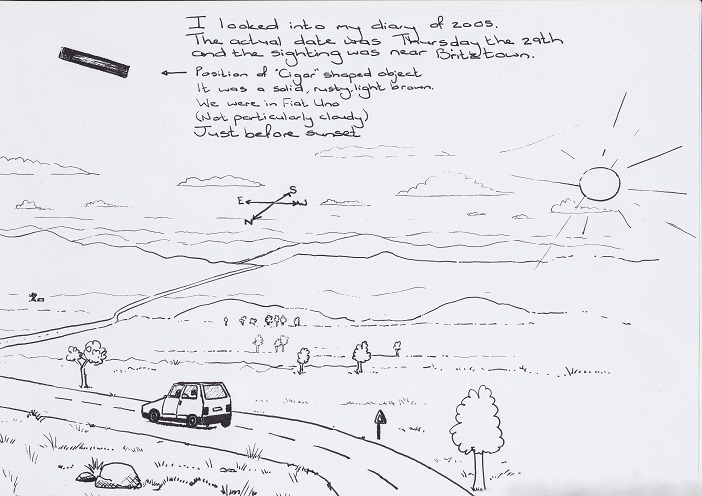 I looked into my diary of 2005.
The actual date was Thursday the 29th
and the sighting was near Britztown.
Position of "Cigar" shaped object
It was a solid, rusty light brown.
We were in Fiat Uno
(Not particularly cloudy)
Just before sunset
S
E W
N